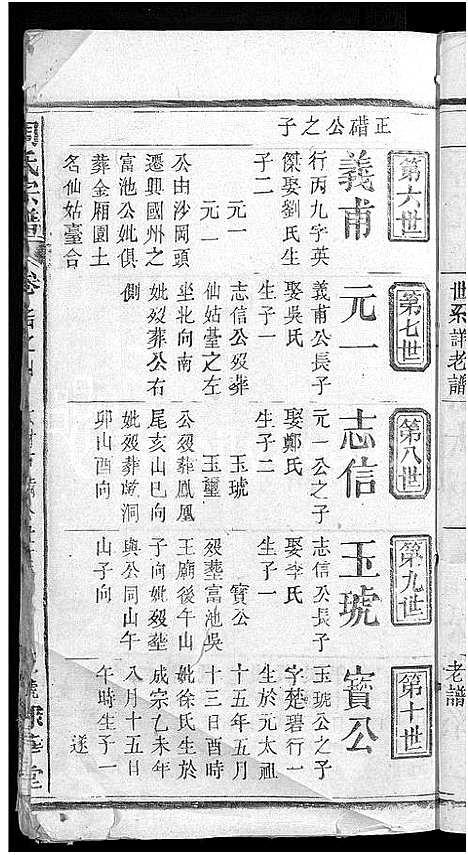 世系
老譜
老譜
第六世
正碏公之子
義甫
行丙九字英
傑娶劉氏生
子二
元一
元一
公由沙岡頭
遷興國州之
富池公妣俱
葬金厢園土
名仙姑臺合
第七世
元一
義甫公長子
娶吳氏
生子一
志信公歿葬
仙姑臺之左
坐北向南
妣歿葬公右
側
第八世
志信
元一公之子
娶鄭氏
生子二
玉琥
玉璽
公歿葬鳳凰
尾亥山巳向
妣歿葬
洞
卯山酉向
第九世
玉琥
志信公長子
娶李氏
生子一
寳公
歿塟富池吳
王廟後午山
子向妣歿塟
與公同山午
山子向
第十世
寳公
玉琥公之子
字楚碧行一
生於元太祖
十五年五月
十三日酉時
妣徐氏生於
成宗乙未年
八月十五日
午時生子一
遂
氏宗譜
卷
堂